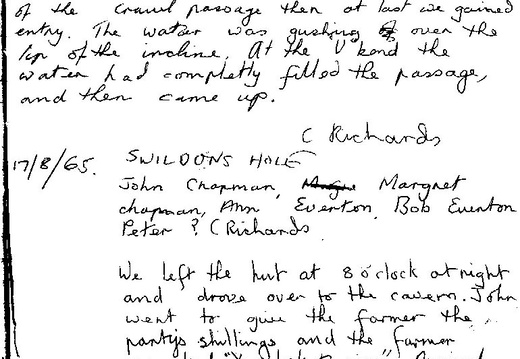 of the crawl passage then at last we gained
entry. The water was gushing over the
lip of the incline. At the 'U' bend the
water had completly filled the passage,
and then came up.
C Richards
17/8/65. SWILDONS HOLE
John Chapman, Margret
chapman, Ann Everton, Bob Everton
Peter ? C Richards
We left the hut at 8 o'clock at night
and drove over to the cavern. John
went to give the farmer the
partys shillings and the farmer